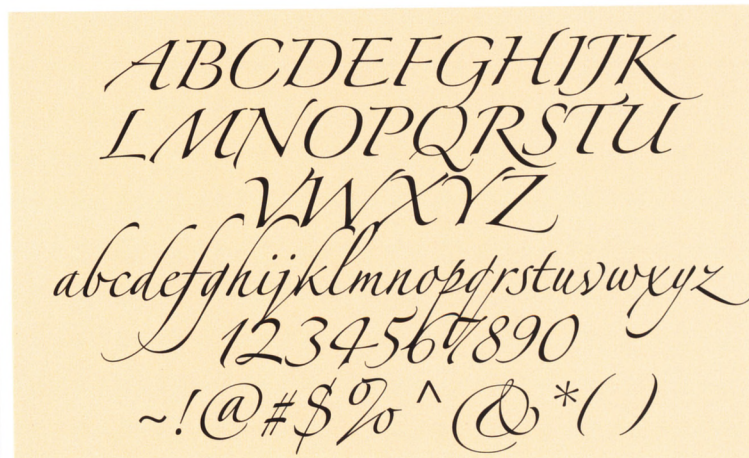 ABCDEFGHIJK
LMNOPQRSTU
VWXYZ
abcdefghijklmnopqrstuvwxyz
1234567890
~!@#$%^&*()